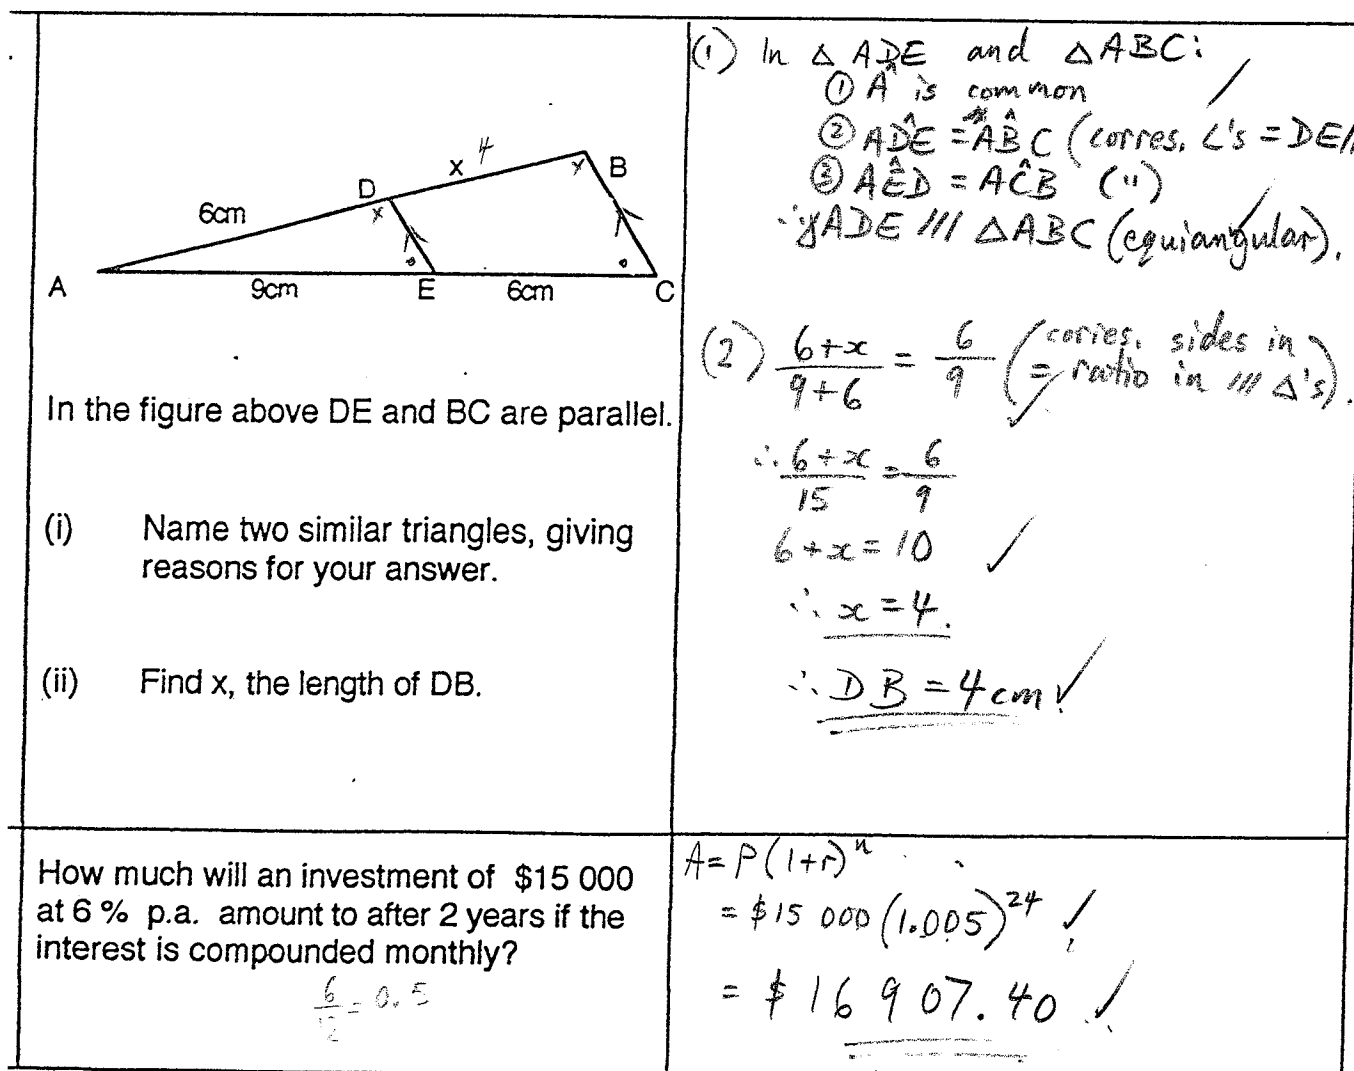 x 4
B
D
6cm
x
x
A
9cm
E
6cm
C
In the figure above DE and BC are parallel.
(i) Name two similar triangles, giving
reasons for your answer.
(ii) Find x, the length of DB.
(1) In △ ADE and △ABC:
① Â is common
② AD̂E = AB̂C (corres. ∠'s = DE//
③ AÊD = AĈB (")
ADE /// △ABC (equiangular).
(2) (6+x)/(9+6) = 6/9 (corres. sides in
= ratio in /// △'s).
∴ (6+x)/15 = 6/9
6+x = 10
∴ x = 4.
∴ DB = 4cm
How much will an investment of $15 000
at 6 % p.a. amount to after 2 years if the
interest is compounded monthly?
6/12 = 0.5
A = P(1+r)ⁿ
= $15 000 (1.005)²⁴
= $16 907.40